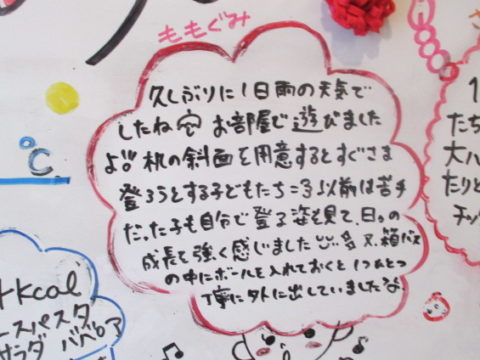 ももぐみ
久しぶりに1日雨の天気で
したね お部屋で遊びました
よ!! 机の斜面を用意するとすぐさま
登ろうとする子どもたち =3 以前は苦手
だった子も自分で登る姿を見て、日々の
成長を強く感じました 又、箱バス
の中にボールを入れておくと1つひとつ
丁寧に外に出していましたな!
℃
kcal
ースパスタ
サラダ ババロア
1
たち
大ハ
たりと
チッ